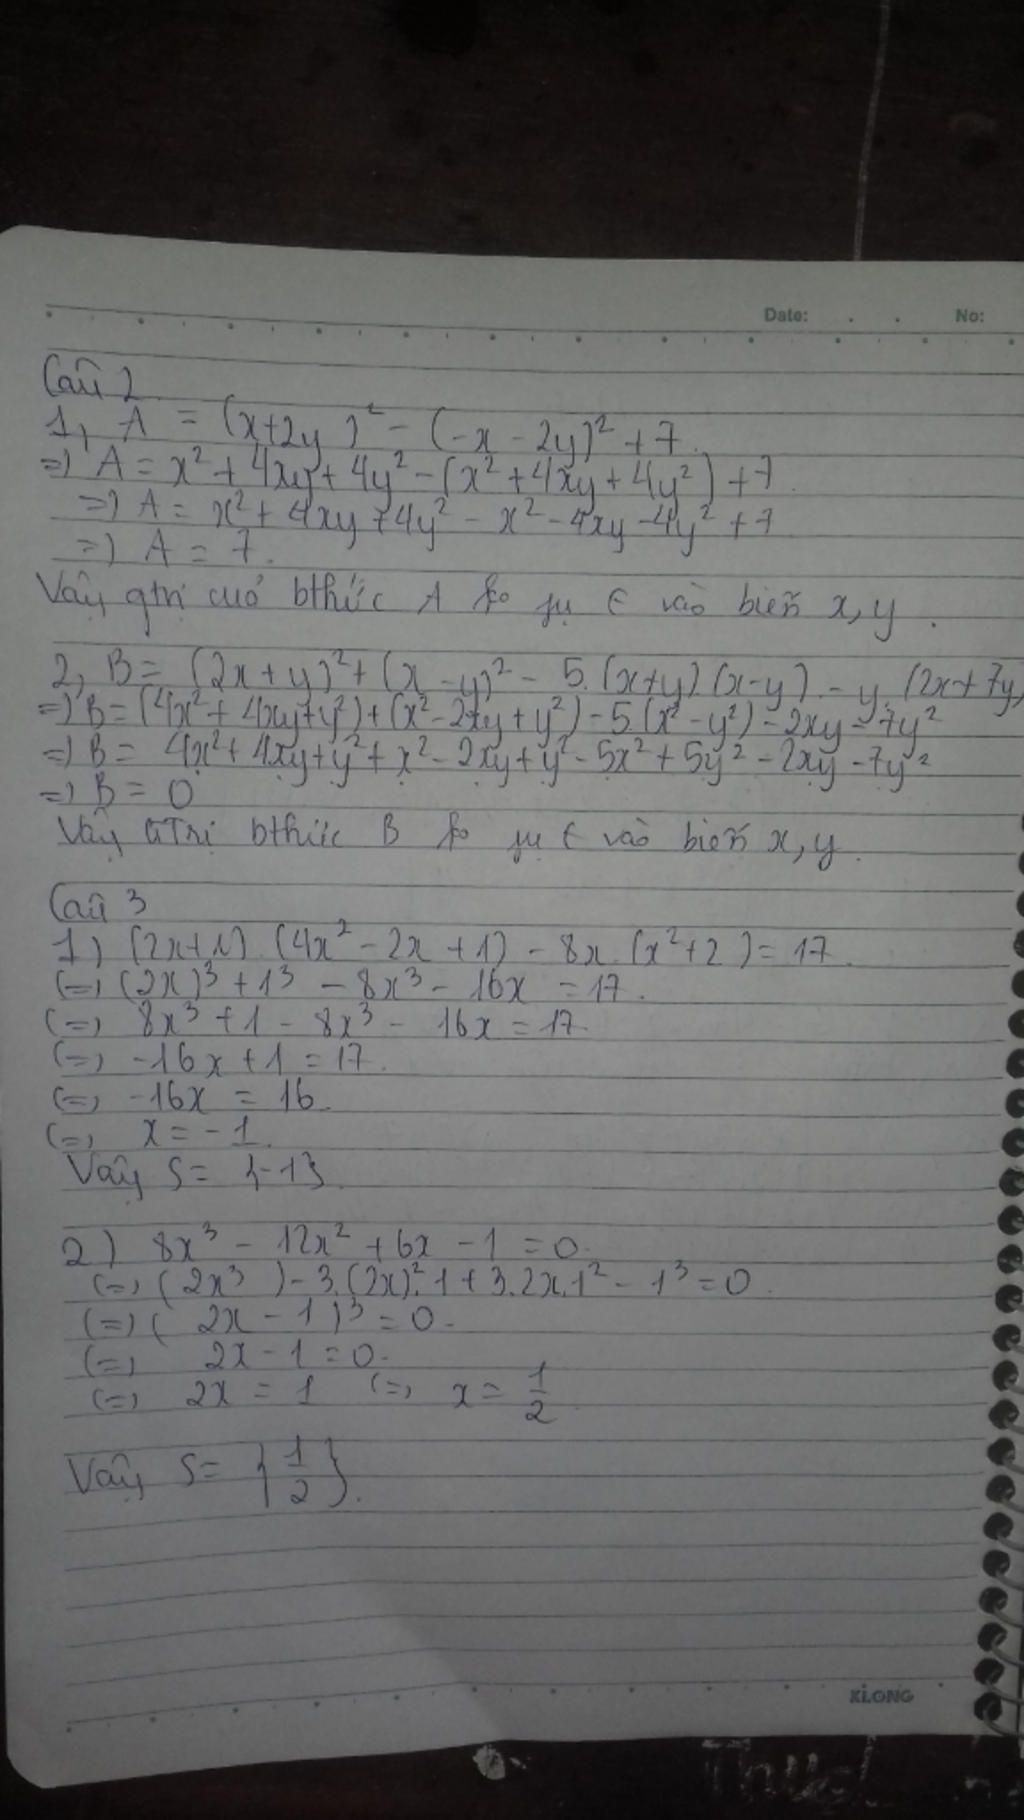 Date: . . No:
Câu 2
1, A = (x+2y)² - (-x - 2y)² + 7
=> A = x² + 4xy + 4y² - (x² + 4xy + 4y²) + 7
=> A = x² + 4xy + 4y² - x² - 4xy - 4y² + 7
=> A = 7.
Vậy gtrị cuả bthức A ko fụ € vào biến x, y.
2, B = (2x + y)² + (x - y)² - 5.(x+y)(x-y) - y.(2x+7y)
=> B = (4x² + 4xy + y²) + (x² - 2xy + y²) - 5.(x² - y²) - 2xy - 7y²
=> B = 4x² + 4xy + y² + x² - 2xy + y² - 5x² + 5y² - 2xy - 7y²
=> B = 0
Vậy GTrị bthức B ko fụ € vào biến x, y.
Câu 3
1) (2x+1).(4x² - 2x + 1) - 8x.(x² + 2) = 17.
(=) (2x)³ + 1³ - 8x³ - 16x = 17.
(=) 8x³ + 1 - 8x³ - 16x = 17.
(=) -16x + 1 = 17.
(=) -16x = 16.
(=) x = -1.
Vậy S = {-1}.
2) 8x³ - 12x² + 6x - 1 = 0.
(=) (2x³ ) - 3.(2x)².1 + 3.2x.1² - 1³ = 0.
(=) ( 2x - 1)³ = 0.
(=) 2x - 1 = 0.
(=) 2x = 1 (=) x = 1/2
Vậy S = {1/2}.
KLONG